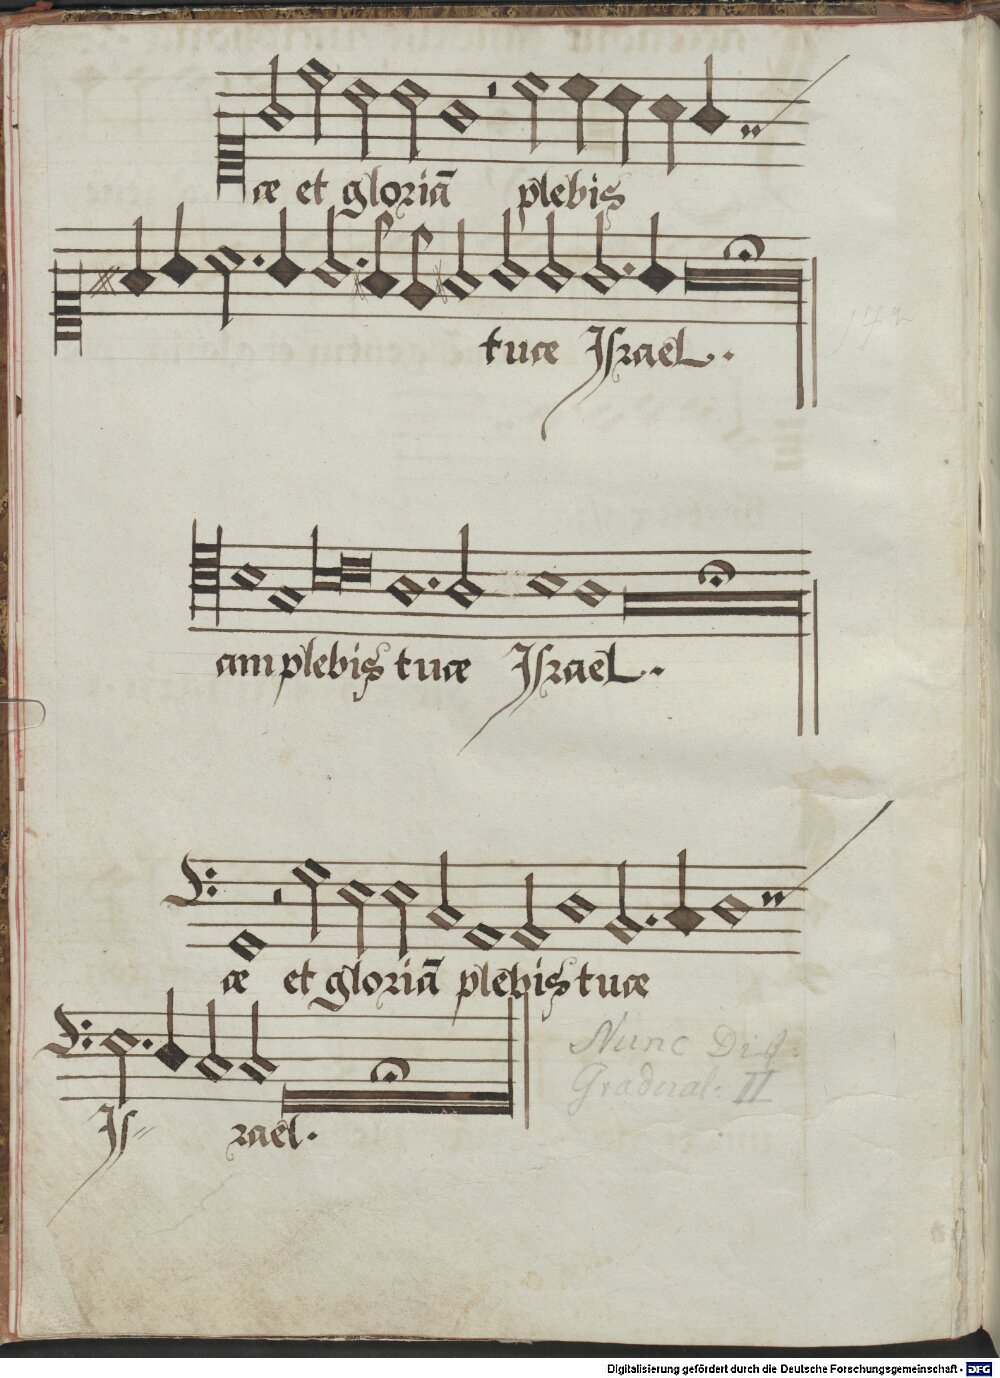 æ et gloriā plebis
tuæ Israel..
am plebis tuæ Israel..
æ et gloriā plebis tuæ
Is= rael.
Nunc Dis.
Gradual: II
Digitalisierung gefördert durch die Deutsche Forschungsgemeinschaft - DFG